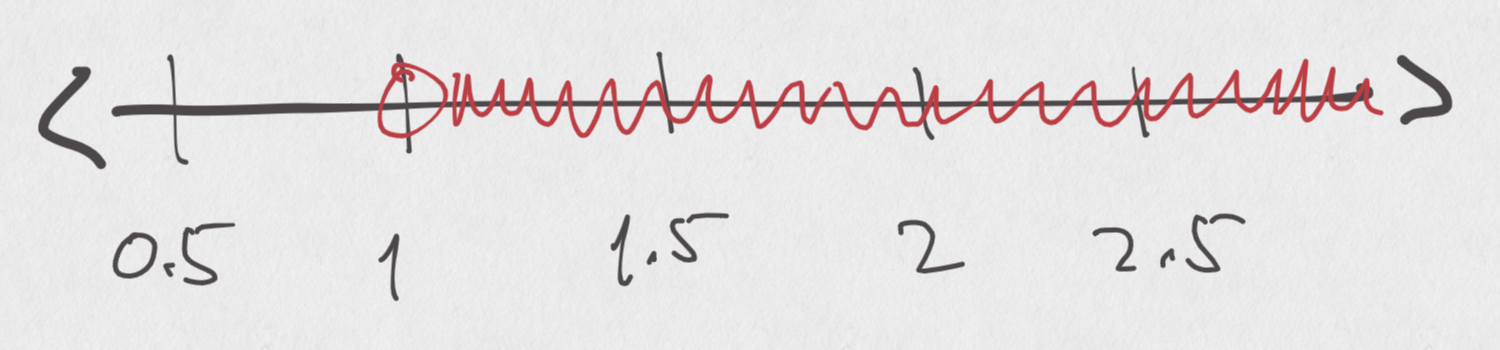 0.5 1 1.5 2 2.5